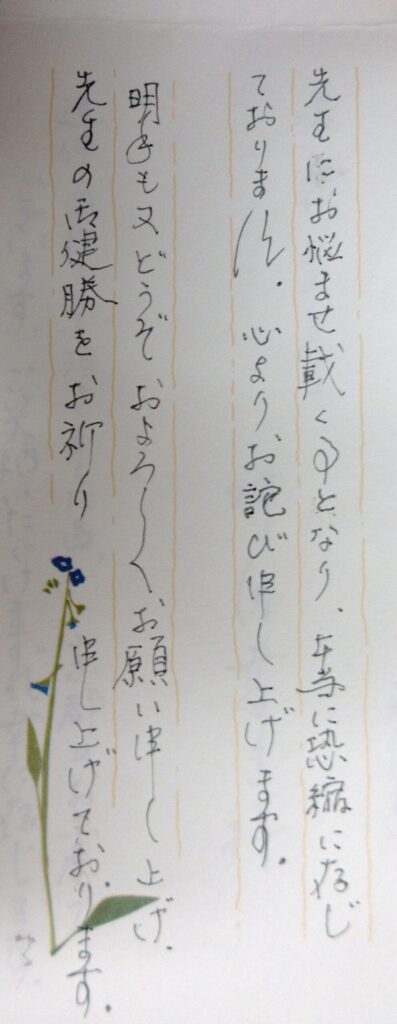 先生にお悩ませ載く事となり、本当に恐縮に存じ
ております。心よりお詫び申し上げます。
明年も又どうぞおよろしくお願い申し上げ、
先生の御健勝をお祈り申し上げております。